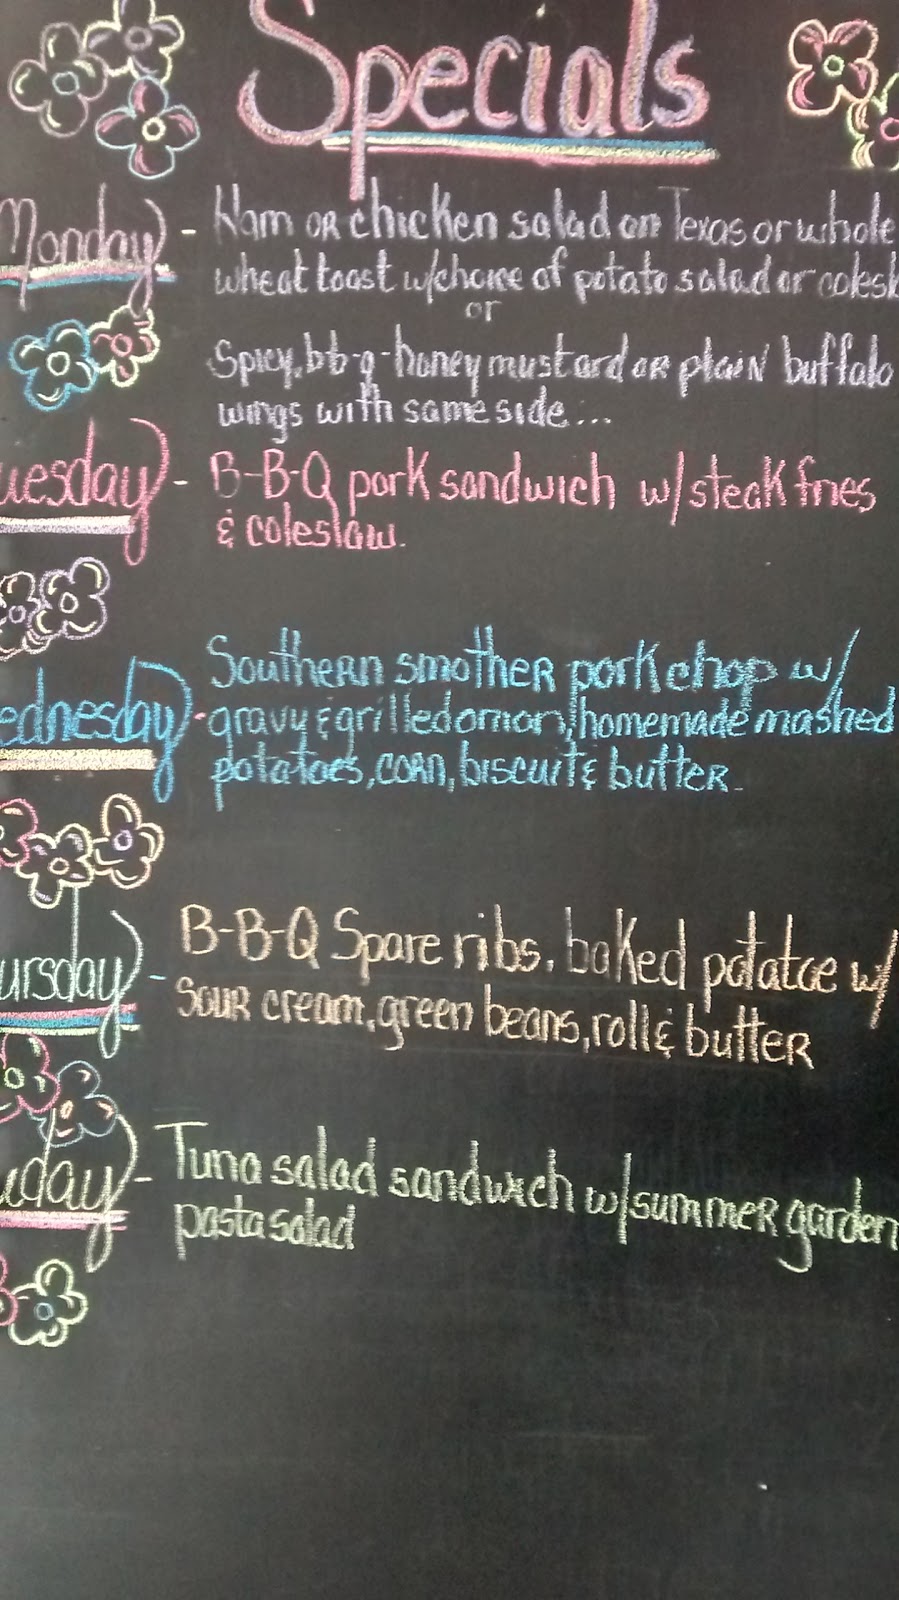 Specials
Monday - Ham or chicken salad on Texas or whole
wheat toast w/choice of potato salad or colesl
or
Spicy, bb-q-honey mustard or plain buffalo
wings with same side...
uesday - B-B-Q pork sandwich w/steak fries
& coleslaw.
Southern smother pork chop w/
ednesday - gravy & grilled onion, homemade mashed
potatoes, corn, biscuit & butter.
B-B-Q Spare ribs, baked potatoe w/
ursday - sour cream, green beans, roll & butter
iday - Tuna salad sandwich w/summer garden
pasta salad